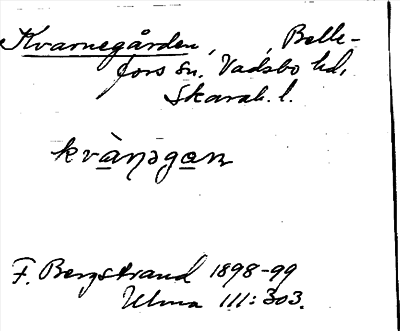 Kvarnegården, , Belle-
fors sn. Vadsbo hd,
Skarab. l.
kvàṇəgan
F. Bergstrand 1898-99
Ulma 111:303.